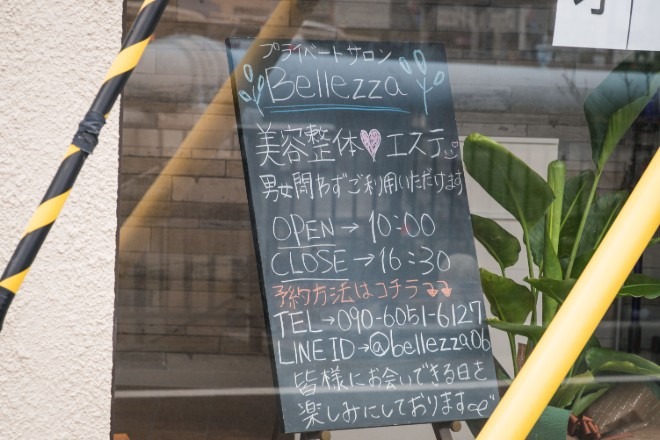 プライベートサロン
Bellezza
美容整体♡エステ
男女問わずご利用いただけます
OPEN→10:00
CLOSE→16:30
予約方法はコチラ↴↴
TEL→090-6051-6127
LINE ID→@bellezza.06
皆様にお会いできる日を
楽しみにしております